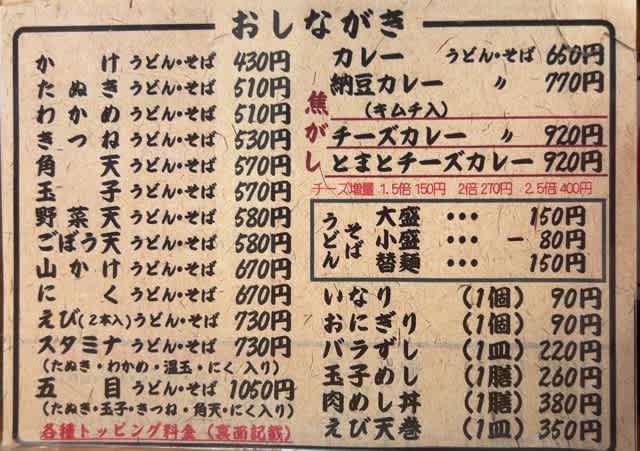 おしながき
かけ うどん・そば 430円
たぬき うどん・そば 510円
わかめ うどん・そば 510円
きつね うどん・そば 530円
角天 うどん・そば 570円
玉子 うどん・そば 570円
野菜天 うどん・そば 580円
ごぼう天 うどん・そば 580円
山かけ うどん・そば 670円
にく うどん・そば 670円
えび(2本入)うどん・そば 730円
スタミナ うどん・そば 730円
(たぬき・わかめ・温玉・にく入り)
五目 うどん・そば 1050円
(たぬき・玉子・きつね・角天・にく入り)
各種トッピング料金(裏面記載)
カレー うどん・そば 650円
納豆カレー 〃 770円
(キムチ入)
焦がし
チーズカレー 〃 920円
とまとチーズカレー 920円
チーズ増量 1.5倍 150円 2倍 270円 2.5倍 400円
うどん
そば
大盛 ・・・ 150円
小盛 ・・・ －80円
替麺 ・・・ 150円
いなり (1個) 90円
おにぎり (1個) 90円
バラずし (1皿) 220円
玉子めし (1膳) 260円
肉めし丼 (1膳) 380円
えび天巻 (1皿) 350円